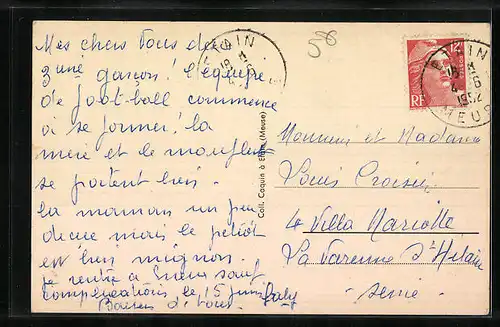 Mes chers tous deux
3ème garçon! l'équipe
de foot-ball commence
à se former! la
mère et le mouflet
se portent bien.
la maman un peu
decue mais le petiot
est bien mignon.
je rentre à sauf
complications le 15 juin
Baisers à tous. Galy
Coll. Coquin à Etain (Meuse)
58
ETAIN
18 H
ETAIN
18 H
4 -6
1952
MEUSE
12F
RF
Monsieur et Madame
Louis
4 Villa Mariotte
La Varenne St Hilaire
Seine